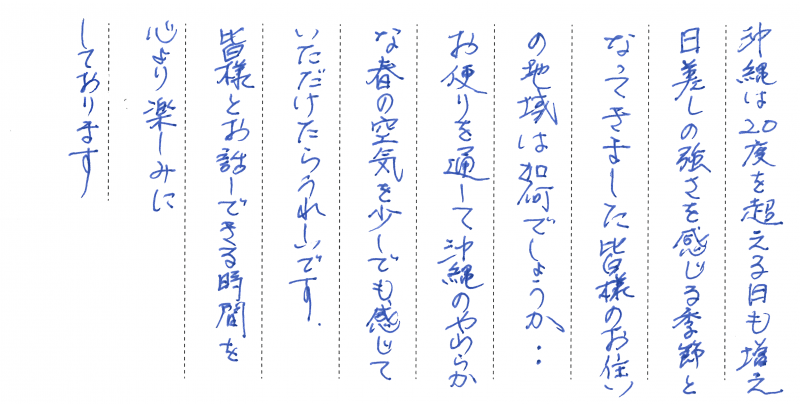 沖縄は20度を超える日も増え
日差しの強さを感じる季節と
なってきました皆様のお住い
の地域は如何でしょうか・・
お便りを通して沖縄のやわらか
な春の空気を少しでも感じて
いただけたらうれしいです.
皆様とお話しできる時間を
心より楽しみに
しております